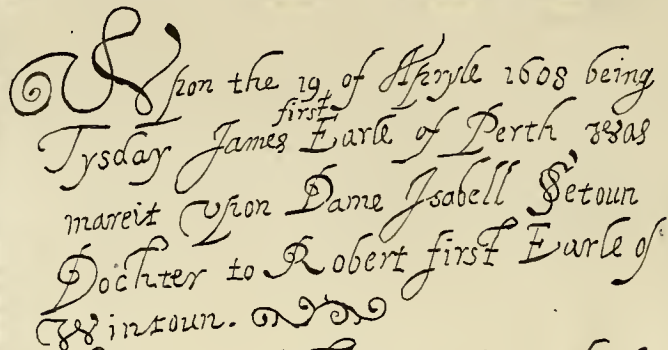 Vpon the 19 of Apryle 1608 being
Tysday James first Earle of Perth was
mareit vpon Dame Isabell Setoun
Dochter to Robert first Earle of
Wintoun.